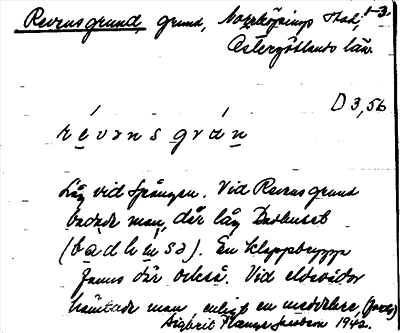 Revensgrund, grund, Norrköpings stad, 1-3.
Östergötlands län.
D 3,56
révənsgrán
Låg vid Spången. Vid Revensgrund
badade man, där låg Badhuset
(badhusə). En klappbrygga
fanns där också. Vid eldsvådor
hämtade man, enligt en meddelare,
Sigbrit Plænge Jacobson 1942.